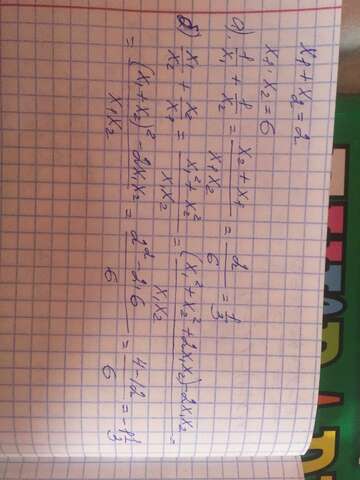 x₁ + x₂ = 2
x₁ · x₂ = 6
а) 1/x₁ + 1/x₂ = (x₂ + x₁)/(x₁x₂) = 2/6 = 1/3
б) x₁/x₂ + x₂/x₁ = (x₁² + x₂²)/(x₁x₂) = ((x₁² + x₂² + 2x₁x₂) - 2x₁x₂)/(x₁x₂) =
= ((x₁ + x₂)² - 2x₁x₂)/(x₁x₂) = (2² - 2·6)/6 = (4 - 12)/6 = -1 1/3